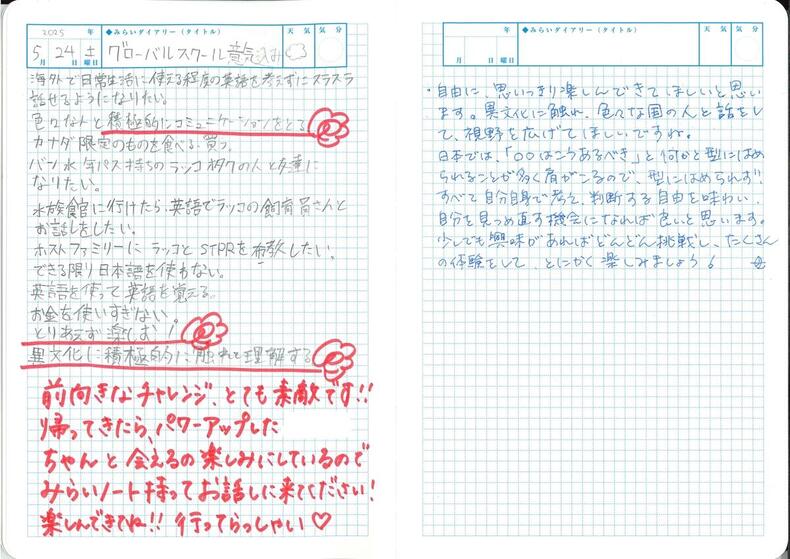 2025 年 ◆みらいダイアリー（タイトル） 天気 気分
5月 24日 土曜日 グローバルスクール意気込み
海外で日常生活に使える程度の英語を考えずにスラスラ
話せるようになりたい。
色々な人と積極的にコミュニケーションをとる
カナダ限定のものを食べる、買う。
バン水年パス持ちのラッコオタクの人と友達に
なりたい。
水族館に行けたら、英語でラッコの飼育員さんと
お話しをしたい。
ホストファミリーにラッコとSTPRを布教したい。
できる限り日本語を使わない。
英語を使って英語を覚える。
お金を使いすぎない。
とりあえず楽しむ！
異文化に積極的に触れて理解する
前向きなチャレンジ、とても素敵です!!
帰ってきたら、パワーアップした
ちゃんと会えるの楽しみにしているので
みらいノート持ってお話しに来てください!
楽しんできてね!! 行ってらっしゃい♡
年 ◆みらいダイアリー（タイトル） 天気 気分
月 日 曜日
・自由に、思いっきり楽しんできてほしいと思い
ます。異文化に触れ、色々な国の人と話をし
て、視野を広げてほしいですね。
日本では、「○○はこうあるべき」と何かと型にはめ
られることが多く肩がこるので、型にはめられず、
すべて自分自身で考え、判断する自由を味わい、
自分を見つめ直す機会になれば良いと思います。
少しでも興味があればどんどん挑戦し、たくさん
の体験をして、とにかく楽しみましょう！